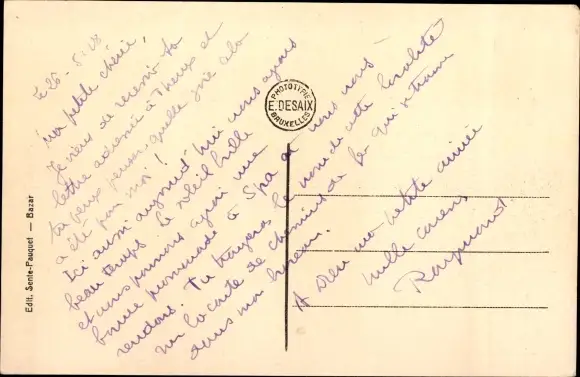 Le 26-8-28
Ma petite chérie,
Je viens de recevoir ta
lettre adressée à Theux et
tu peux penser quelle joie cela
a été pour moi !
Ici aussi aujourd'hui nous avons
beau temps le soleil brille
et nous pourrons ainsi une
bonne promenade à Spa où nous nous
rendons. Tu trouveras le nom de cette localité
sur la carte de chemins de fer qui se trouve
dans mon bureau.
A Dieu ma petite aimée
mille caresses
Raymond.
PHOTOTYPIE
E. DESAIX
BRUXELLES
Edit. Sente-Pauquet — Bazar